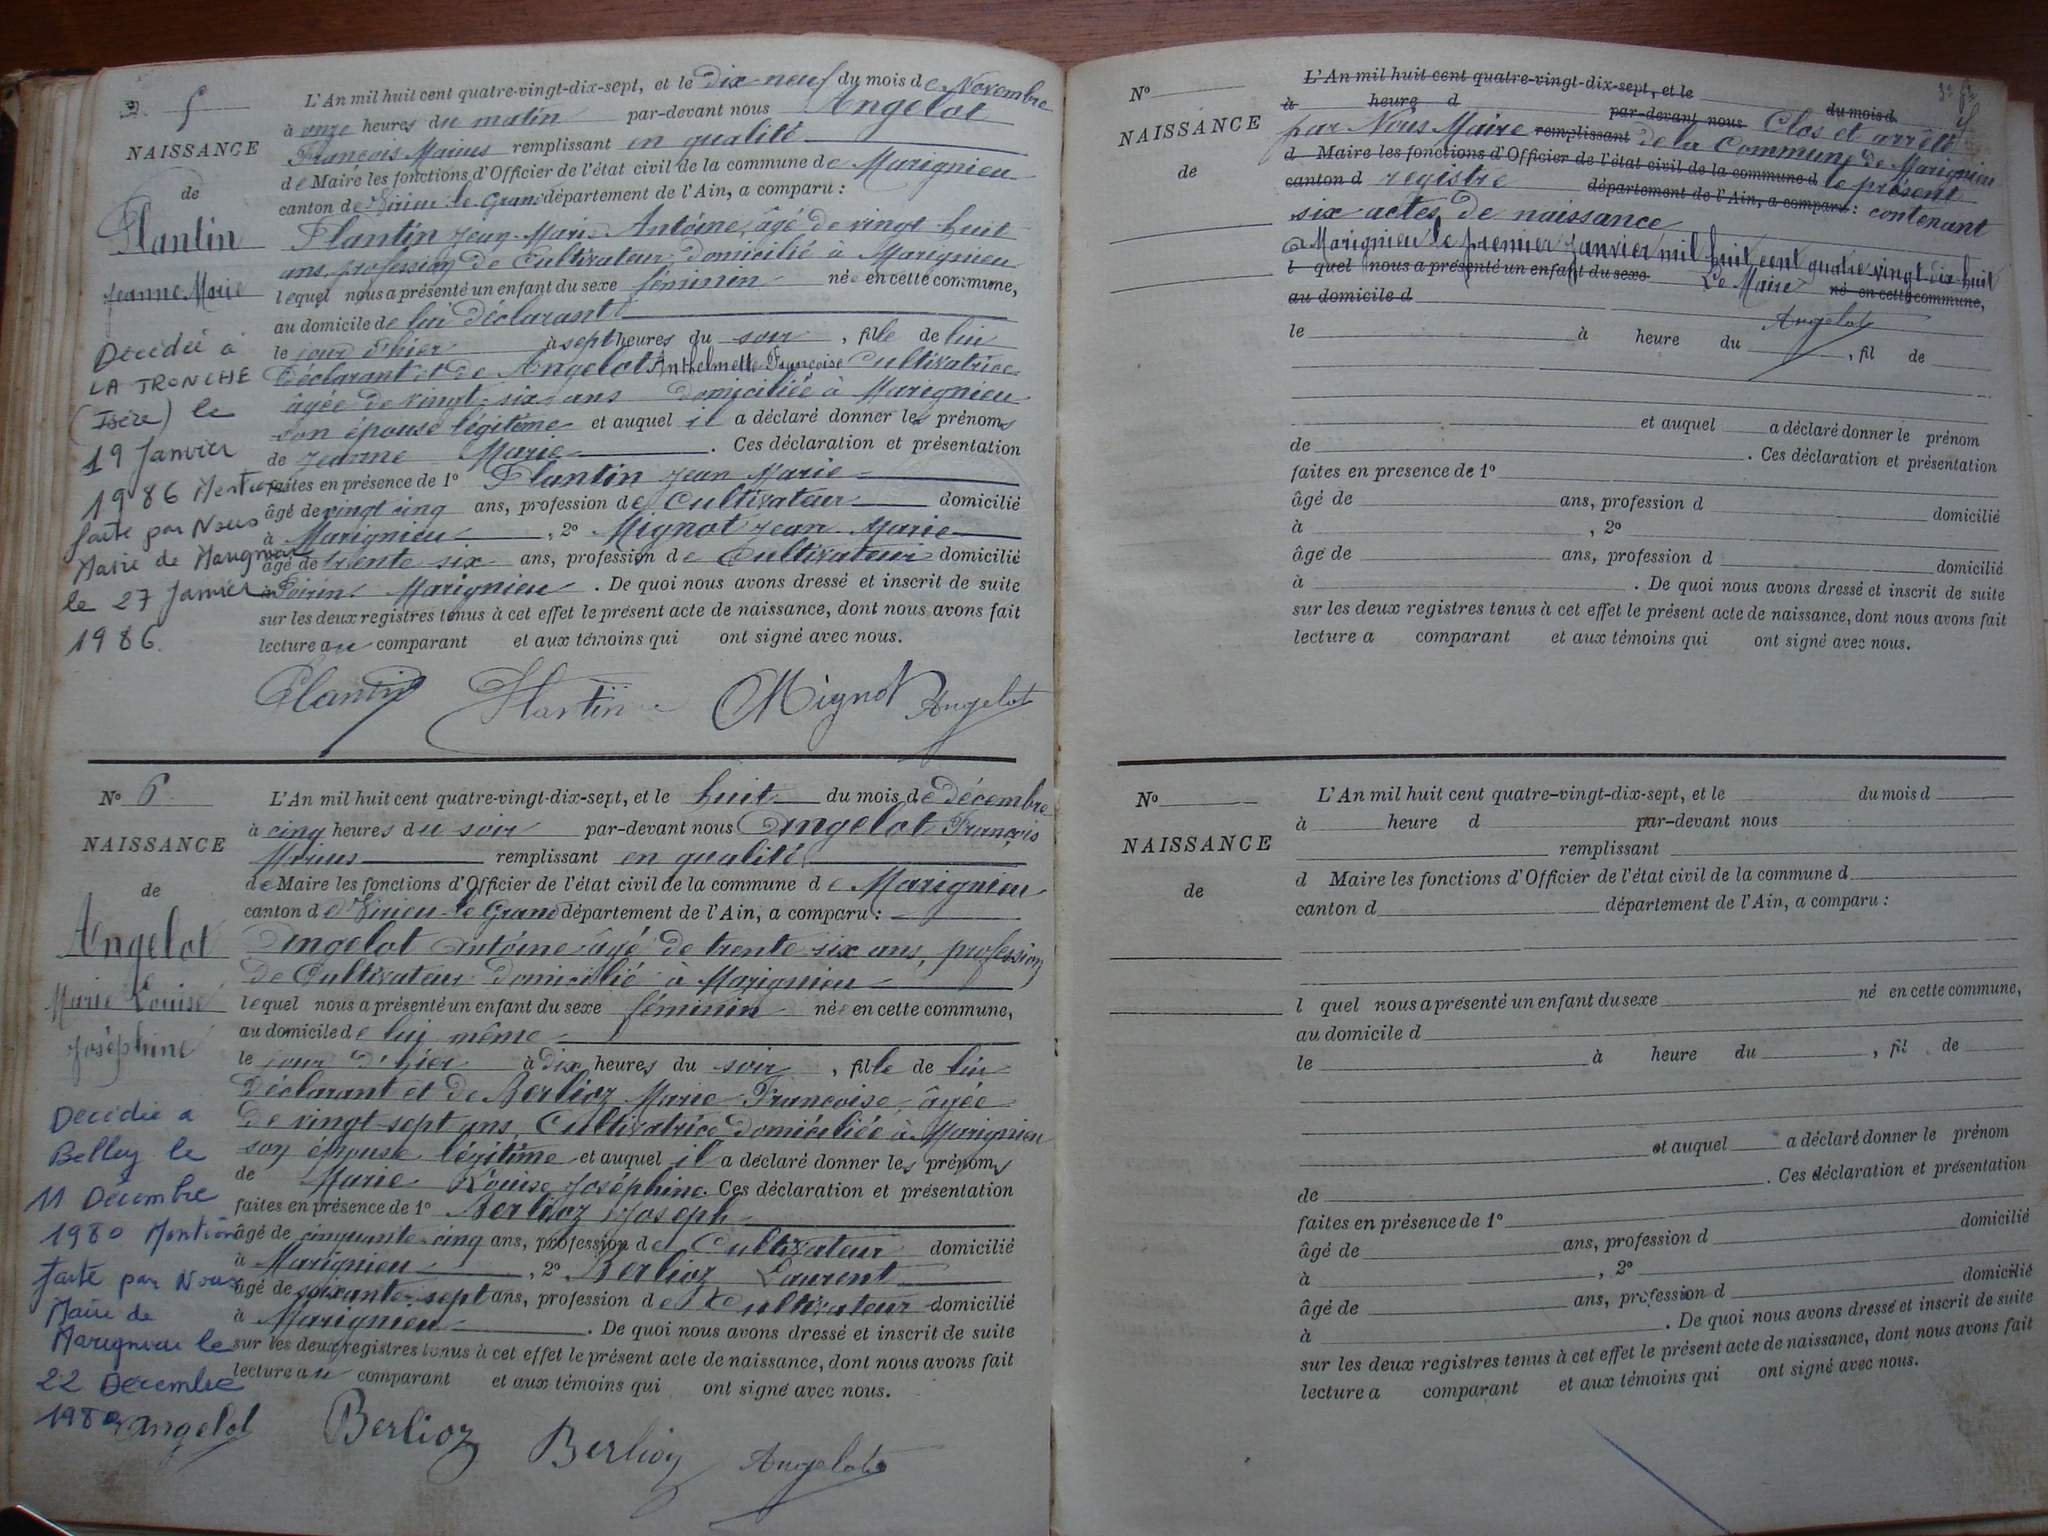 5
NAISSANCE
de
Plantin
Jeanne Marie
Décédée à
LA TRONCHE
(Isère) le
19 Janvier
1986 Mention
faite par Nous
Maire de Marignieu
le 27 Janvier
1986.
L'An mil huit cent quatre-vingt-dix-sept, et le dix-neuf du mois de Novembre
à onze heures du matin par-devant nous Angelot
François Marius remplissant en qualité
de Maire les fonctions d'Officier de l'état civil de la commune de Marignieu
canton de Virieu-le-Grand département de l'Ain, a comparu :
Plantin Jean-Marie Antoine, âgé de vingt-huit
ans, profession de Cultivateur, domicilié à Marignieu
lequel nous a présenté un enfant du sexe féminin née en cette commune,
au domicile de lui déclarant
le jour d'hier à sept heures du soir, fille de lui
déclarant et de Angelot Anthelmette Françoise Cultivatrice
âgée de vingt-six ans domiciliée à Marignieu
son épouse légitime et auquel il a déclaré donner les prénoms
de Jeanne Marie. Ces déclaration et présentation
faites en présence de 1º Plantin Jean Marie
âgé de vingt cinq ans, profession de Cultivateur domicilié
à Marignieu, 2º Mignot Jean Marie
âgé de trente six ans, profession de Cultivateur domicilié
à Poirin Marignieu. De quoi nous avons dressé et inscrit de suite
sur les deux registres tenus à cet effet le présent acte de naissance, dont nous avons fait
lecture au comparant et aux témoins qui ont signé avec nous.
Plantin Plantin Mignot Angelot
Nº 6
NAISSANCE
de
Angelot
Marie Louise
Joséphine
Décédée à
Belley le
11 Décembre
1980 Mention
faite par Nous
Maire de
Marignieu le
22 Décembre
1980
L'An mil huit cent quatre-vingt-dix-sept, et le huit du mois de décembre
à cinq heures du soir par-devant nous Angelot François
Marius remplissant en qualité
de Maire les fonctions d'Officier de l'état civil de la commune de Marignieu
canton de Virieu-le-Grand département de l'Ain, a comparu :
Angelot Antoine âgé de trente six ans, profession
de Cultivateur domicilié à Marignieu
lequel nous a présenté un enfant du sexe féminin née en cette commune,
au domicile de lui même
le jour d'hier à dix heures du soir, fille de lui
déclarant et de Berlioz Marie Françoise, âgée
de vingt-sept ans, Cultivatrice domiciliée à Marignieu
son épouse légitime et auquel il a déclaré donner les prénoms
de Marie Louise Joséphine. Ces déclaration et présentation
faites en présence de 1º Berlioz Joseph
âgé de cinquante-cinq ans, profession de Cultivateur domicilié
à Marignieu, 2º Berlioz Laurent
âgé de soixante-sept ans, profession de Cultivateur domicilié
à Marignieu. De quoi nous avons dressé et inscrit de suite
sur les deux registres tenus à cet effet le présent acte de naissance, dont nous avons fait
lecture au comparant et aux témoins qui ont signé avec nous.
Angelot Berlioz Berlioz Angelot
Nº
NAISSANCE
de
L'An mil huit cent quatre-vingt-dix-sept, et le du mois d
à heure d par-devant nous Clos et arrêté
par Nous Maire remplissant de la Commune de Marignieu
d Maire les fonctions d'Officier de l'état civil de la commune d le présent
canton d registre département de l'Ain, a comparu : contenant
six actes de naissance
Marignieu le premier janvier mil huit cent quatre-vingt-dix-huit
l quel nous a présenté un enfant du sexe Le Maire né en cette commune,
au domicile d
Angelot
le à heure du , fil de
et auquel a déclaré donner le prénom
de . Ces déclaration et présentation
faites en presence de 1º
âgé de ans, profession d domicilié
à , 2º
âgé de ans, profession d domicilié
à . De quoi nous avons dressé et inscrit de suite
sur les deux registres tenus à cet effet le présent acte de naissance, dont nous avons fait
lecture a comparant et aux témoins qui ont signé avec nous.
Nº
NAISSANCE
de
L'An mil huit cent quatre-vingt-dix-sept, et le du mois d
à heure d par-devant nous
remplissant
d Maire les fonctions d'Officier de l'état civil de la commune d
canton d département de l'Ain, a comparu :
l quel nous a présenté un enfant du sexe né en cette commune,
au domicile d
le à heure du , fil de
et auquel a déclaré donner le prénom
de . Ces déclaration et présentation
faites en présence de 1º
âgé de ans, profession d domicilié
à , 2º
âgé de ans, profession d domicilié
à . De quoi nous avons dressé et inscrit de suite
sur les deux registres tenus à cet effet le présent acte de naissance, dont nous avons fait
lecture a comparant et aux témoins qui ont signé avec nous.